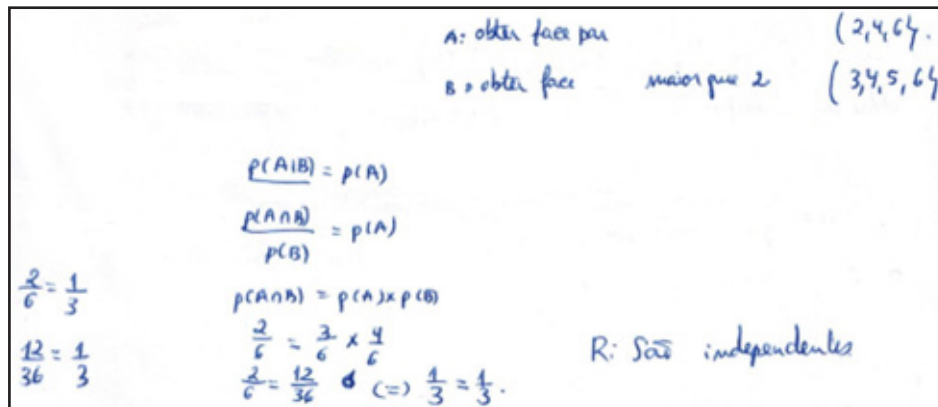 A: obter face par {2,4,6}.
B: obter face maior que 2 {3,4,5,6}
p(A|B) = p(A)
p(A∩B)/p(B) = p(A)
2/6 = 1/3
p(A∩B) = p(A) x p(B)
2/6 = 3/6 x 4/6
12/36 = 1/3
2/6 = 12/36 (=) 1/3 = 1/3.
R: São independentes